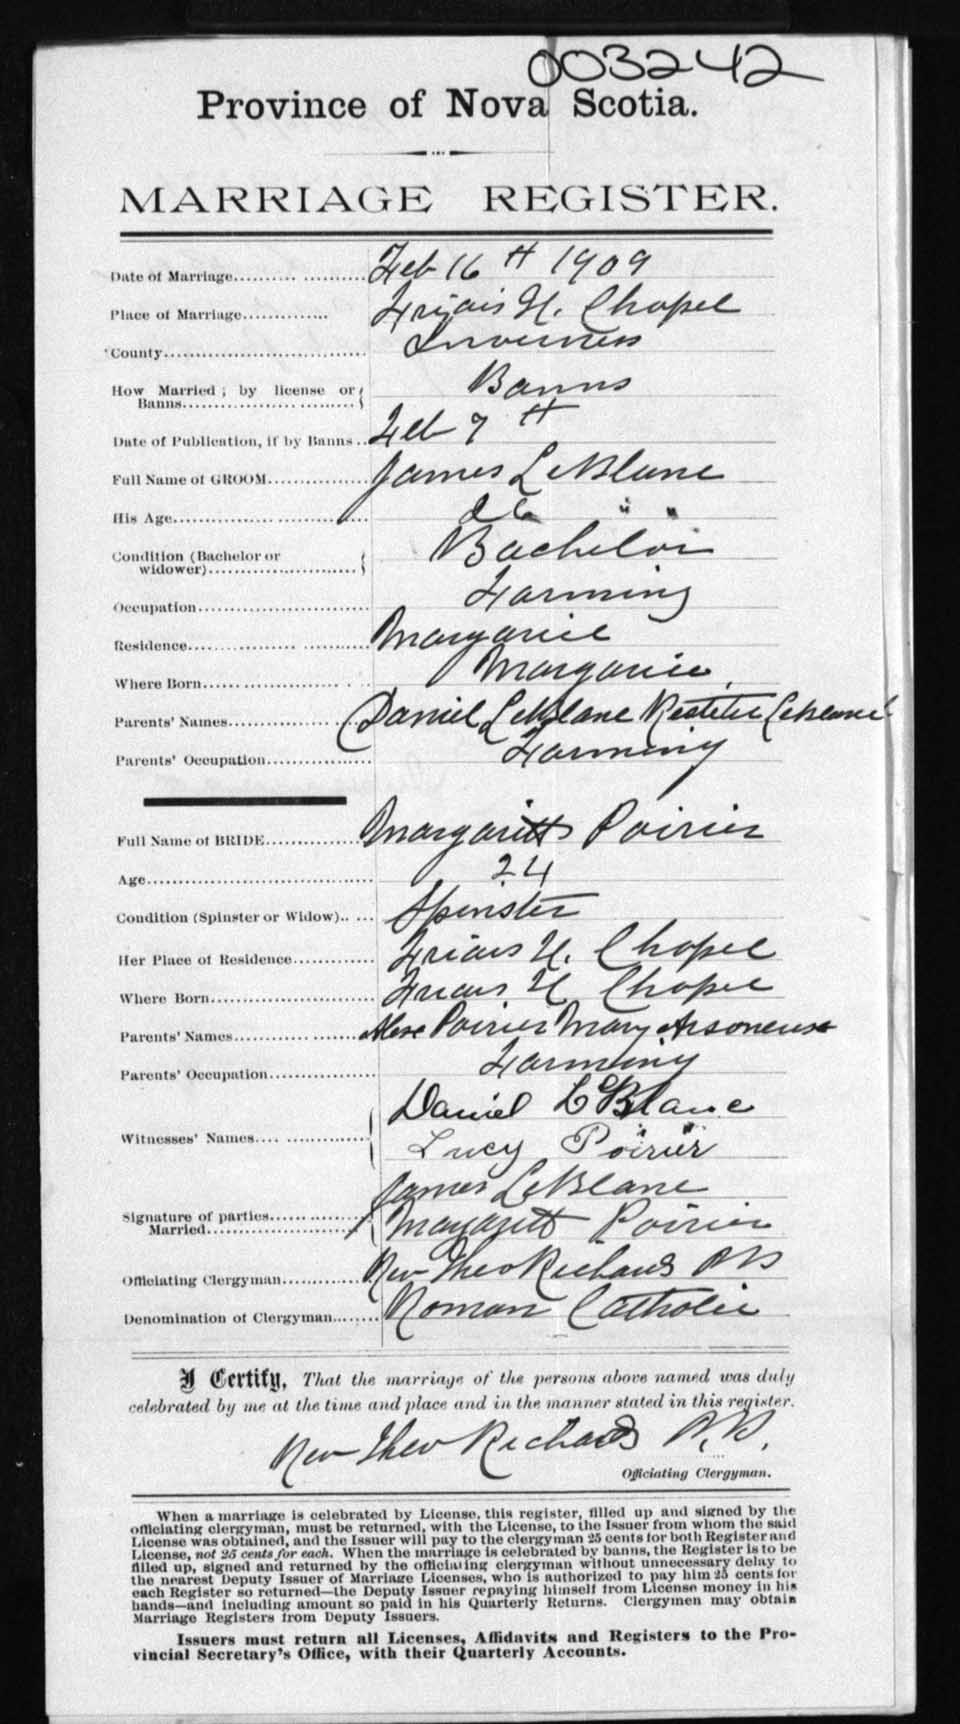 003242
Province of Nova Scotia.
MARRIAGE REGISTER.
Date of Marriage.......... Feb 16th 1909
Place of Marriage............. Friars H. Chapel
County.............................. Inverness
How Married; by license or
Banns.......................... Banns
Date of Publication, if by Banns.. Feb 7th
Full Name of GROOM............... James LeBlanc
His Age............................ 26 " "
Condition (Bachelor or
widower)...................... Bachelor
Occupation.......................... Farming
Residence.......................... Margaree
Where Born........................ Margaree
Parents' Names.................... Daniel LeBlanc Restitu LeBlanc
Parents' Occupation............... Farming
Full Name of BRIDE............... Margaritt Poirier
Age................................... 24
Condition (Spinster or Widow)..... Spinster
Her Place of Residence............ Friars H. Chapel
Where Born........................ Friars H Chapel
Parents' Names................... Poirier Mary
Parents' Occupation............... Farming
Witnesses' Names.... ............ Daniel LeBlanc
Lucy Poirier
James LeBlanc
Signature of parties...............
Married...................... Margaritt Poirier
Officiating Clergyman............. Rev Theo Richard P.P.
Denomination of Clergyman........ Roman Catholic
I Certify, That the marriage of the persons above named was duly
celebrated by me at the time and place and in the manner stated in this register.
Rev Theo Richard P.P.
Officiating Clergyman.
When a marriage is celebrated by License, this register, filled up and signed by the
officiating clergyman, must be returned, with the License, to the Issuer from whom the said
License was obtained, and the Issuer will pay to the clergyman 25 cents for both Register and
License, not 25 cents for each. When the marriage is celebrated by banns, the Register is to be
filled up, signed and returned by the officiating clergyman without unnecessary delay to
the nearest Deputy Issuer of Marriage Licenses, who is authorized to pay him 25 cents for
each Register so returned—the Deputy Issuer repaying himself from License money in his
hands—and including amount so paid in his Quarterly Returns. Clergymen may obtain
Marriage Registers from Deputy Issuers.
Issuers must return all Licenses, Affidavits and Registers to the Pro-
vincial Secretary's Office, with their Quarterly Accounts.